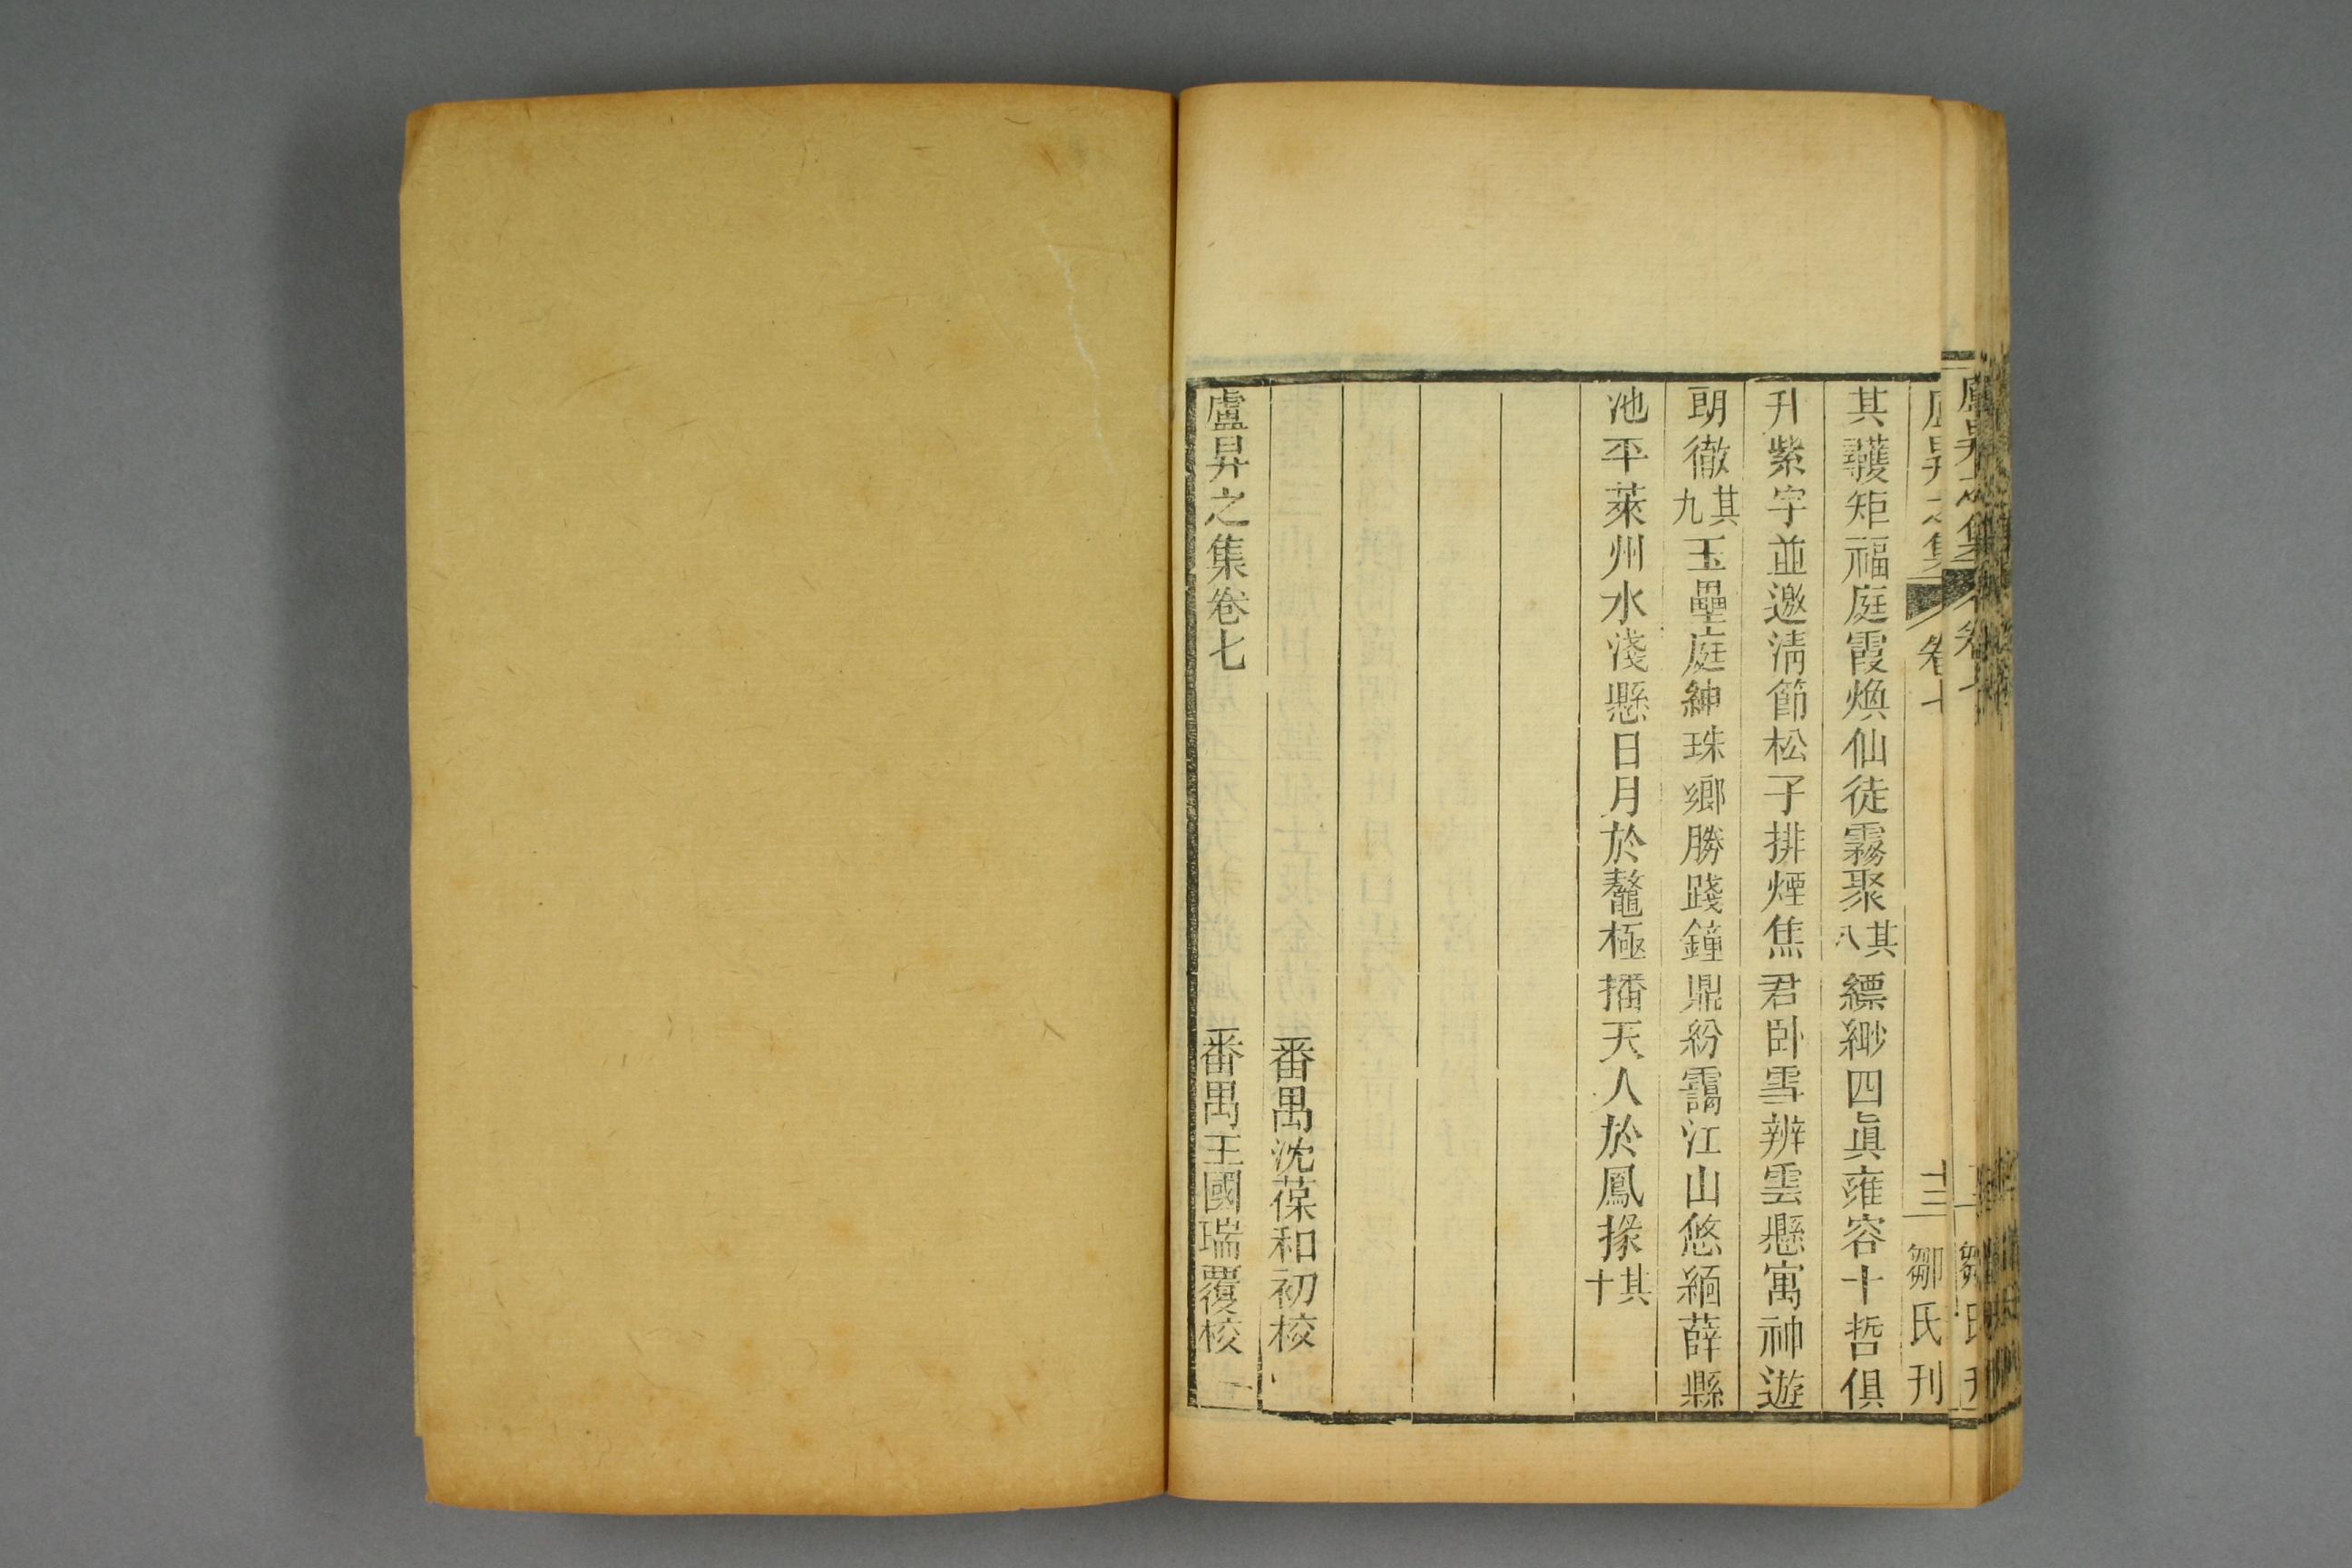 盧昇之集 卷七 十三 鄒氏刊
其矱矩福庭霞煥仙徒霧聚其八縹緲四眞雍容十哲俱
升紫字並邀淸節松子排煙焦君卧雪辨雲懸寓神遊
朗徹其九玉壘庭紳珠鄉勝踐鐘鼎紛靄江山悠緬薛縣
池平萊州水淺懸日月於鼇極播天人於鳳掾其十
番禺沈葆和初校
盧昇之集卷七 番禺王國瑞覆校